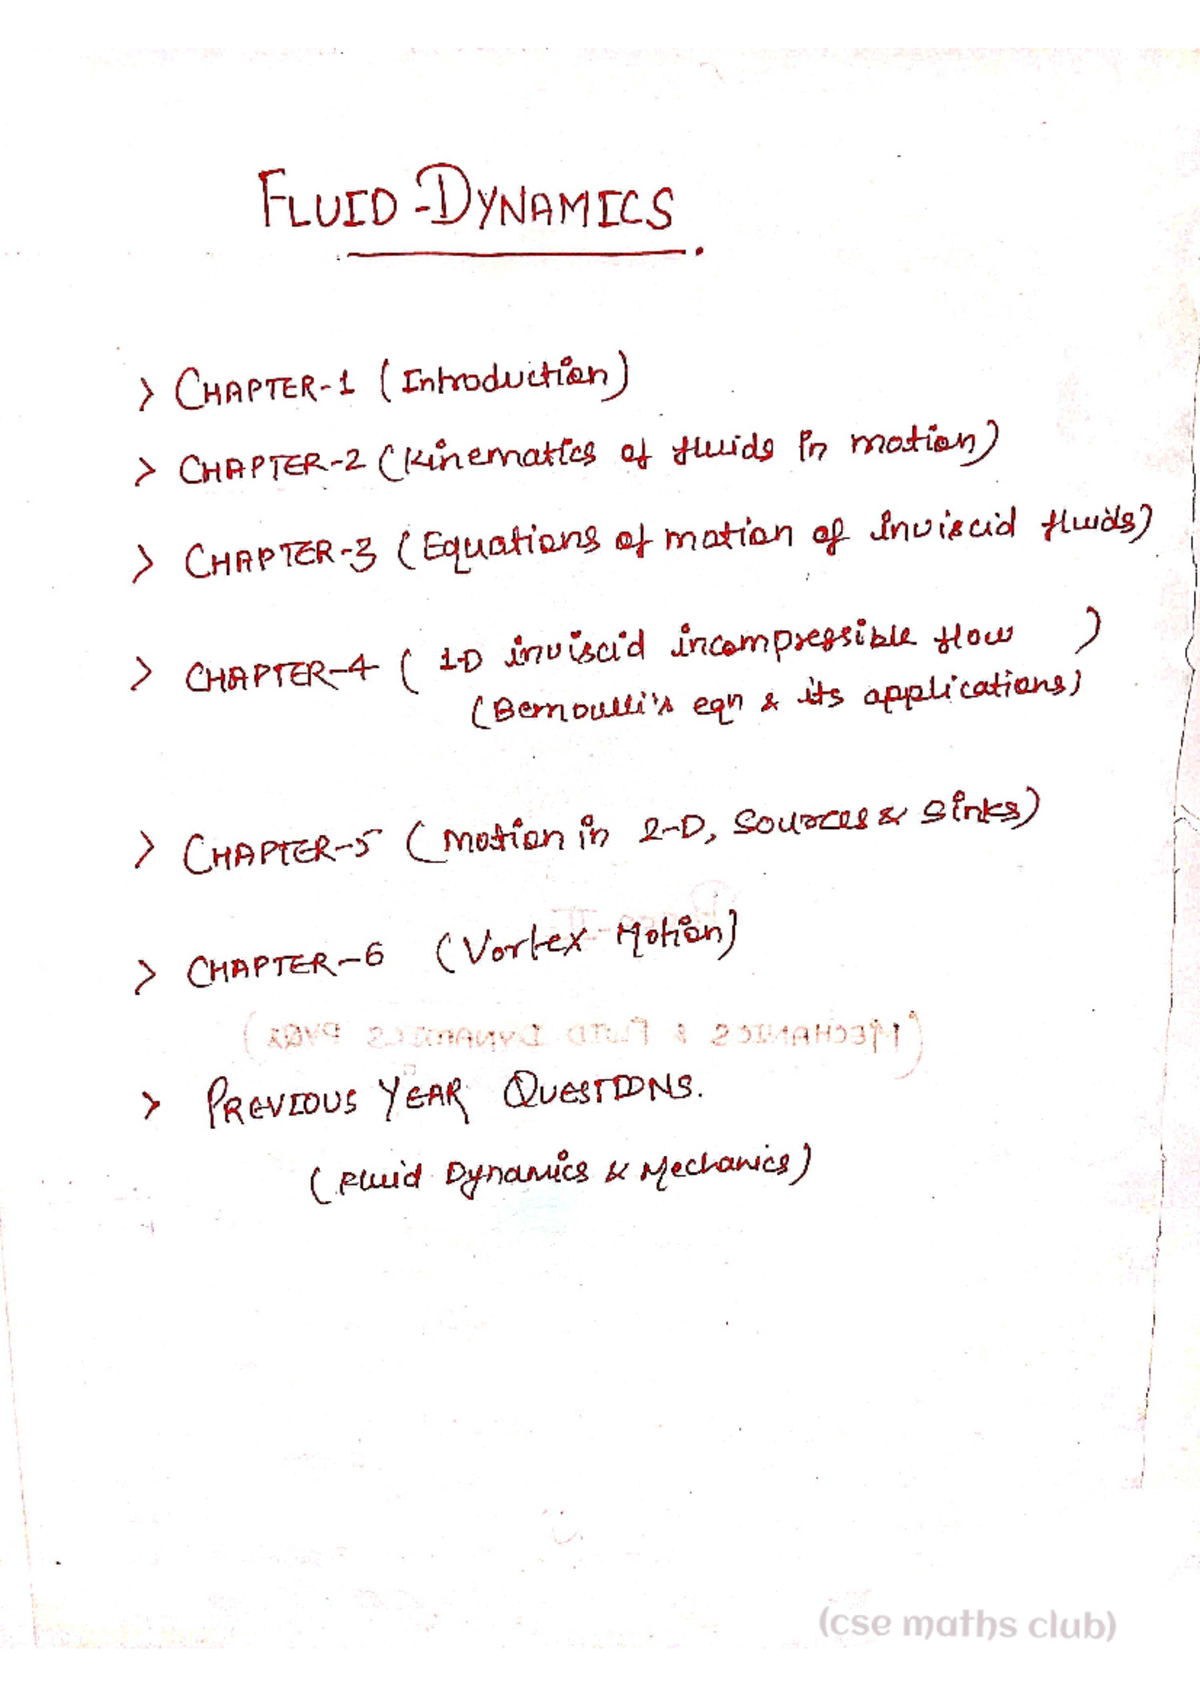 FLUID-DYNAMICS.
> CHAPTER-1 (Introduction)
> CHAPTER-2 (Kinematics of fluids in motion)
> CHAPTER-3 (Equations of motion of inviscid fluids)
> CHAPTER-4 ( 1-D inviscid incompressible flow )
(Bernoulli's eqn & its applications)
> CHAPTER-5 (Motion in 2-D, Sources & Sinks)
> CHAPTER-6 (Vortex Motion)
> PREVIOUS YEAR QUESTIONS.
(Fluid Dynamics & Mechanics)
(cse maths club)